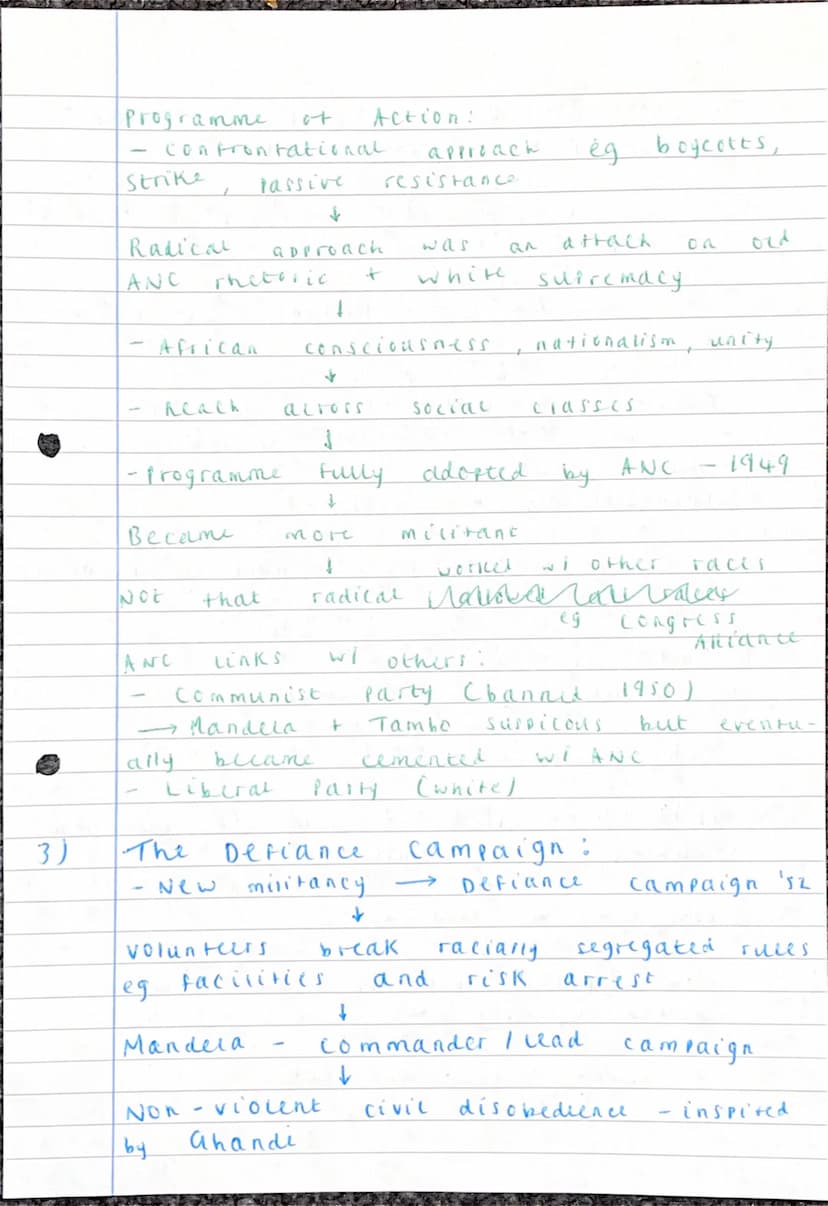 Programme of Action:
- confrontational approach eg boycotts,
strike, passive resistance
↓
Radical approach was an attack on old
ANC rhetoric + white supremacy
↓
- African consciousness, nationalism, unity
↓
- Reach across social classes
↓
- Programme fully adopted by ANC - 1949
↓
Became more militant
↓ worked w/ other races
Not that radical
eg Congress
Alliance
ANC links w/ others:
- Communist Party (banned 1950)
→ Mandela + Tambo suspicous but eventu-
ally became cemented w/ ANC
- Liberal Party (white)
3) The Defiance Campaign:
- New militancy → Defiance campaign '52
↓
Volunteers break racially segregated rules
eg facilities and risk arrest
↓
Mandela - commander / lead campaign
↓
Non-violent civil disobedience - inspired
by Ghandi